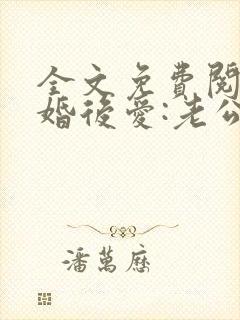 全文免費閱
婚後愛:老公
潘萬歷